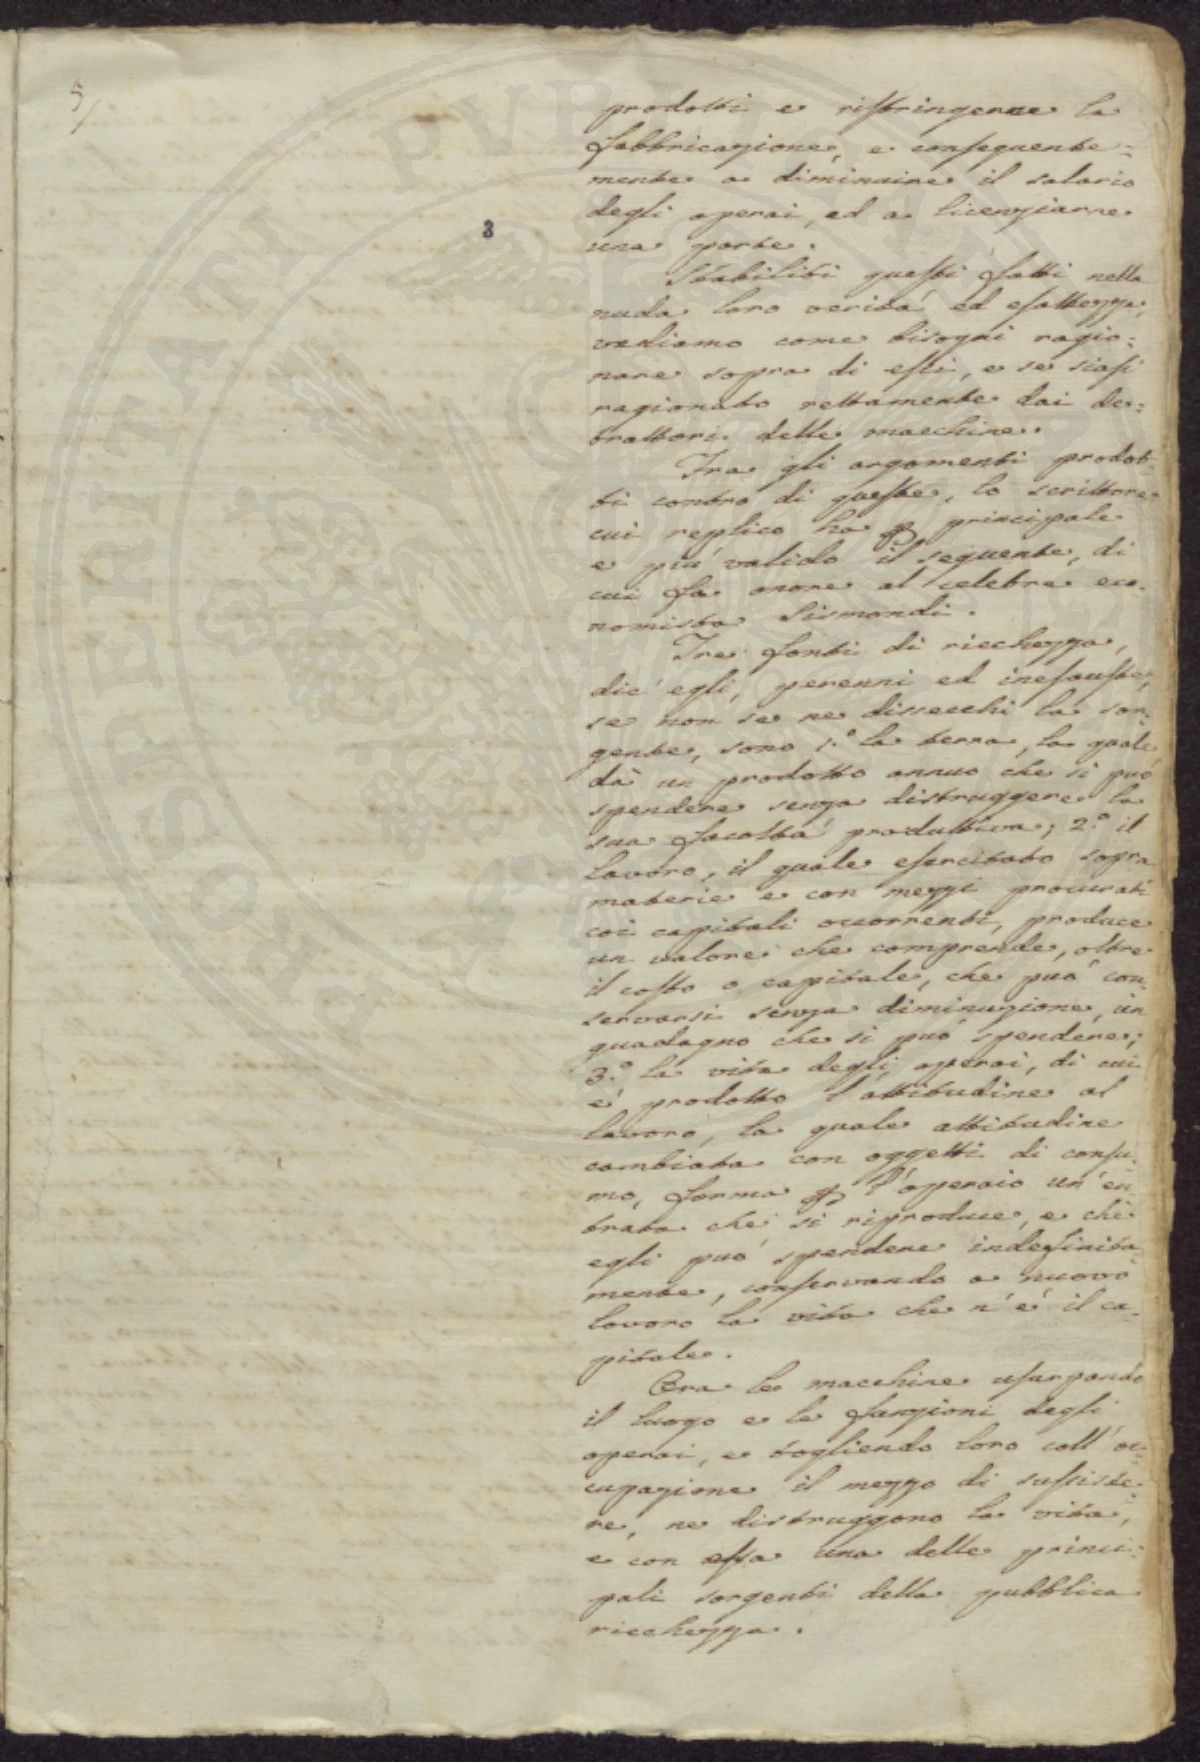 5/
8
prodotti e ristringerne la
fabbricazione, e conseguente=
mente a diminuire il salario
degli operai, ed a licenziarne
una parte.
Stabiliti questi fatti nella
nuda loro verità ed esattezza,
vediamo come bisogni ragio=
nare sopra di essi, e se siasi
ragionato rettamente dai de=
trattori delle macchine.
Tra gli argomenti prodot=
ti contro di queste, lo scrittore
cui replico ha p principale
e più valido il seguente, di
cui fa onore al celebre eco=
nomista Sismondi.
Tre fonti di ricchezza,
dic'egli, perenni ed inesauste,
se non se ne dissecchi la sor=
gente, sono 1.º la terra, la quale
dà un prodotto annuo che si può
spendere senza distruggere la
sua facoltà produttiva; 2.º il
lavoro, il quale esercitato sopra
materie e con mezzi procurati
coi capitali occorrenti, produce
un valore che comprende, oltre
il costo o capitale, che può con=
servarsi senza diminuzione, un
guadagno che si può spendere;
3.º la vita degli operai, di cui
è prodotto l'attitudine al
lavoro, la quale attitudine
cambiata con oggetti di consu=
mo, forma p l'operaio un'en=
trata che si riproduce, e che
egli può spendere indefinita=
mente, conservando a nuovo
lavoro la vita che n'è il ca=
pitale.
Ora le macchine usurpando
il luogo e le funzioni degli
operai, e togliendo loro coll'oc=
cupazione il mezzo di sussiste=
re, ne distruggono la vita,
e con essa una delle princi=
pali sorgenti della pubblica
ricchezza.